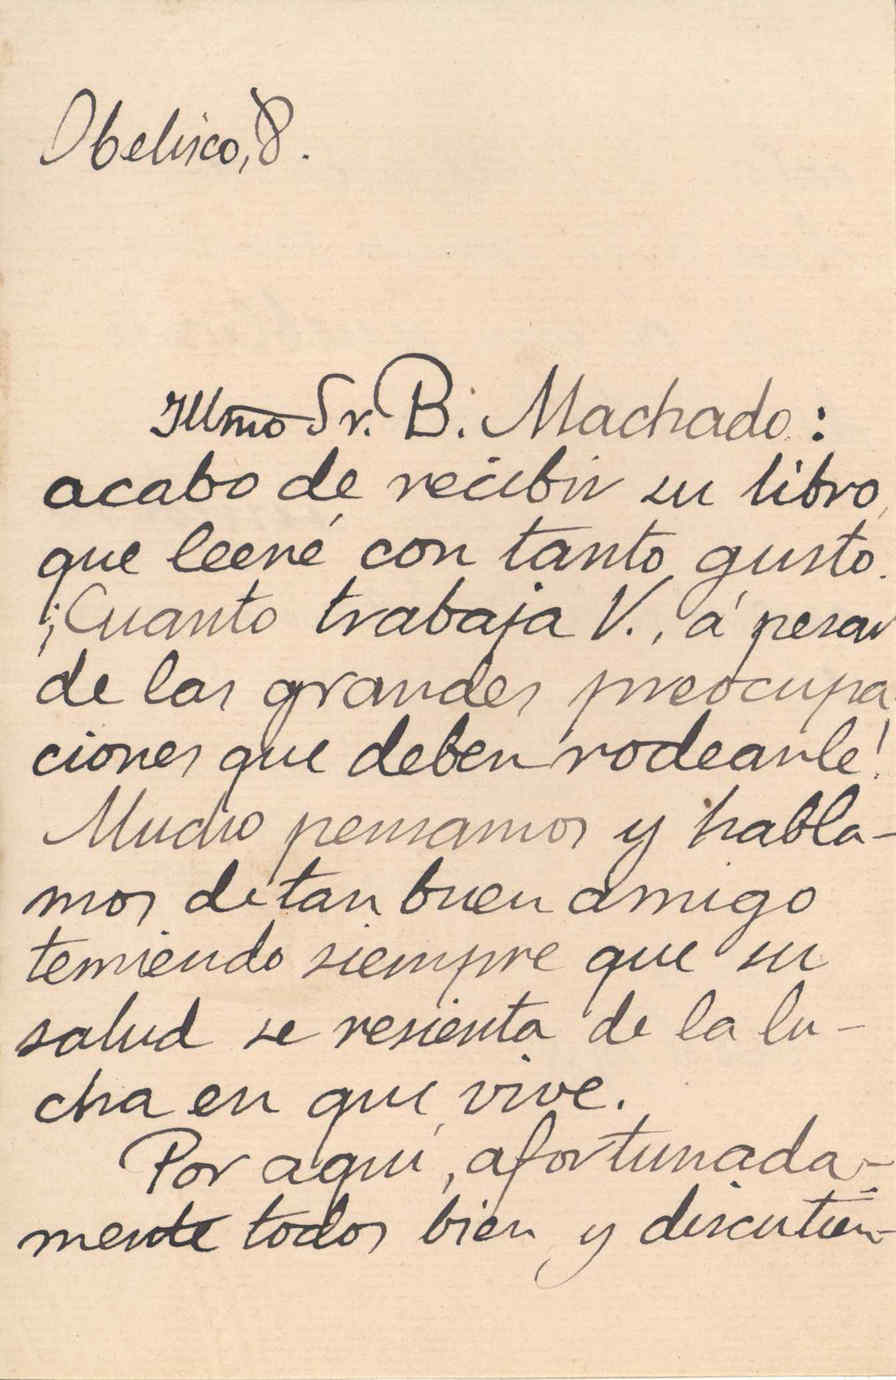 Obelisco, 8.
Illmo Sr. B. Machado:
acabo de recibir su libro,
que leeré con tanto gusto.
¡Cuanto trabaja V., á pesar
de las grandes preocupa
ciones que deben rodearle!
Mucho pensamos y habla-
mos de tan buen amigo
temiendo siempre que su
salud se resienta de la lu-
cha en que vive.
Por aquí, afortunada-
mente todos bien y discutien-